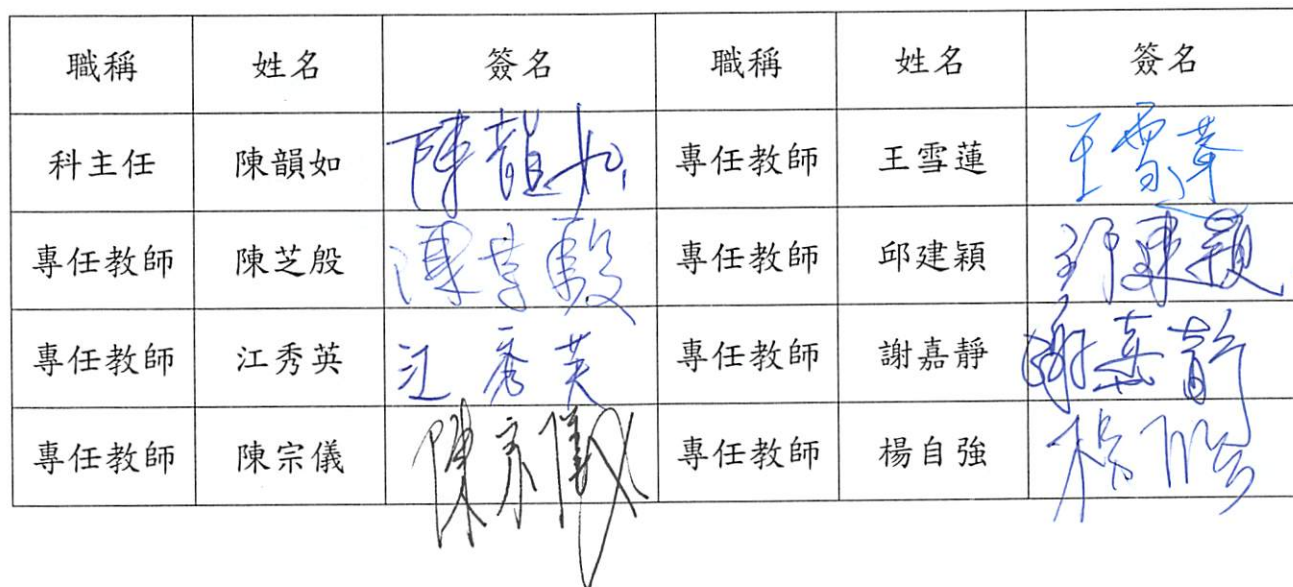 職稱 姓名 簽名 職稱 姓名 簽名
科主任 陳韻如 陳韻如 專任教師 王雪蓮 王雪蓮
專任教師 陳芝殷 陳芝殷 專任教師 邱建穎 邱建穎
專任教師 江秀英 江秀英 專任教師 謝嘉靜 謝嘉靜
專任教師 陳宗儀 陳宗儀 專任教師 楊自強 楊自強